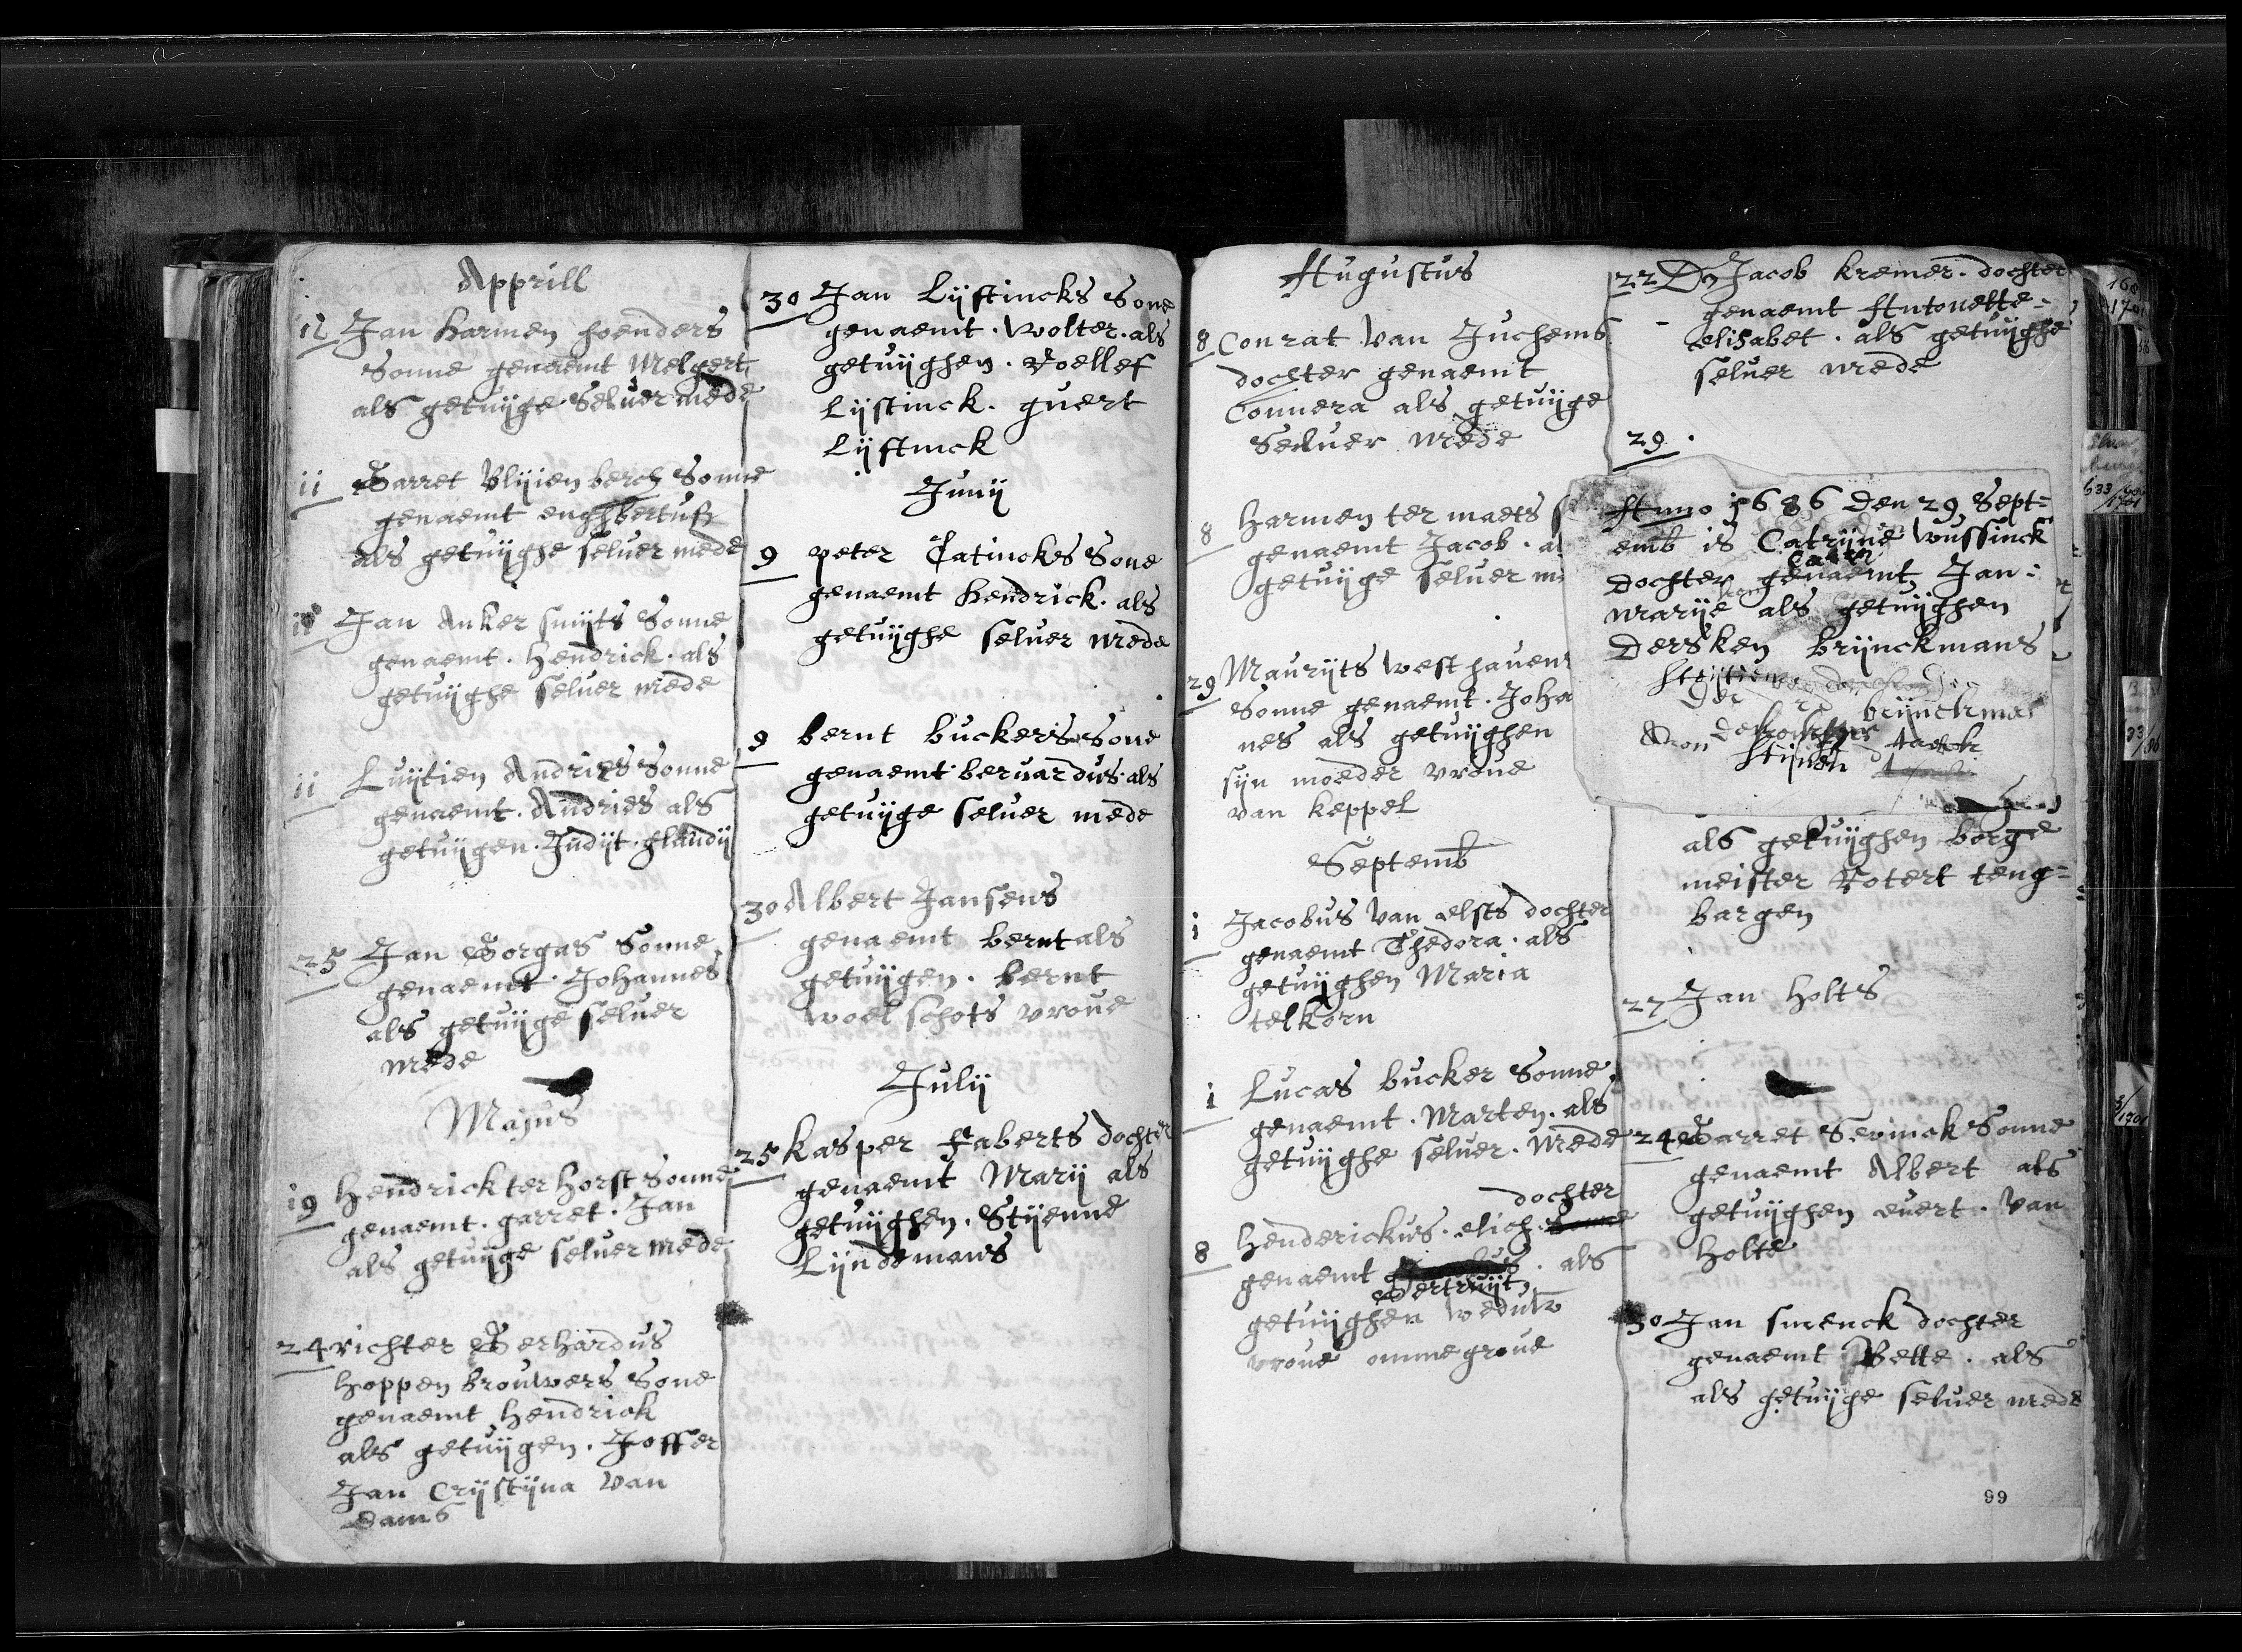 Apprill
12 Jan Harmen hoenders
Sonne genaemt Melgert
als getuijge Seluer mede
ii Garret Blijienberch Sonne
genaemt enghbertus
als getuijghe seluer mede
Jan Anker smijts Sonne
genaemt. Hendrick. als
getuijghe seluer mede
ii Luijtien Andries Sonne
genaemt. Andries als
getuijgen. Judijt. glaudij
25 Jan Gorgas Sonne
genaemt. Johannes
als getuijge seluer
mede
Majus
i9 Hendrick ter Horst Sonne
genaemt. garret. Jan
als getuijge seluer mede
24 richter Gerhardus
hoppen brouwers Sone
genaemt Hendrick
als getuijgen. Joffer
Jan Crijstijna van
Dams
30 Jan Lijstincks Sone
genaemt. Wolter. als
getuijghen. Roellef
Lijstinck. guert
Lijstinck
Junij
9 peter Catincks Sone
genaemt Hendrick. als
getuijghe seluer mede
9 bernt buckers Sone
genaemt bernardus. als
getuijge seluer mede
30 Albert Jansens
genaemt bernt als
getuijgen. bernt
woelschots vroue
Julij
25 Kasper Faberts dochter
genaemt Marij als
getuijghen. Stijenne
Lijndemans
Augustus
8 Conrat van Juchems
dochter genaemt
Connera als getuijge
Seluer mede
8 Harmen ter maets
genaemt Jacob.
getuijge seluer
29 Maurijts westhauens
Sonne genaemt. Joha
nes als getuijghen
sijn moeder vroue
van keppel
Septemb
i Jacobus van elsts dochter
genaemt Thedora. als
getuijghen Maria
telkorn
i Lucas bucker Sonne
genaemt. Marten. als
getuijghe seluer. Mede
dochter
8 Henderickus. elich. Sonne
genaemt . als
Gertruijt
getuijghen weduw
vroue ommegroue
22 Do Jacob Kremer. dochter
genaemt Antonette=
elisabet. als getuijghe
seluer mede
29.
Anno i686 den 29 Sept=
emb is Catrijne wussinck
dochter genaemt Jan=
marije als getuijghen
Dersken brijnckmans
brijnckma
Stijnen
als getuijghen borge
meister Rotert teng=
bargen
27 Jan Holts
24 Garret Sevinck Sonne
genaemt Albert als
getuijghen euert. van
Holte
30 Jan smenck dochter
genaemt Bette. als
als getuijge seluer mede
99